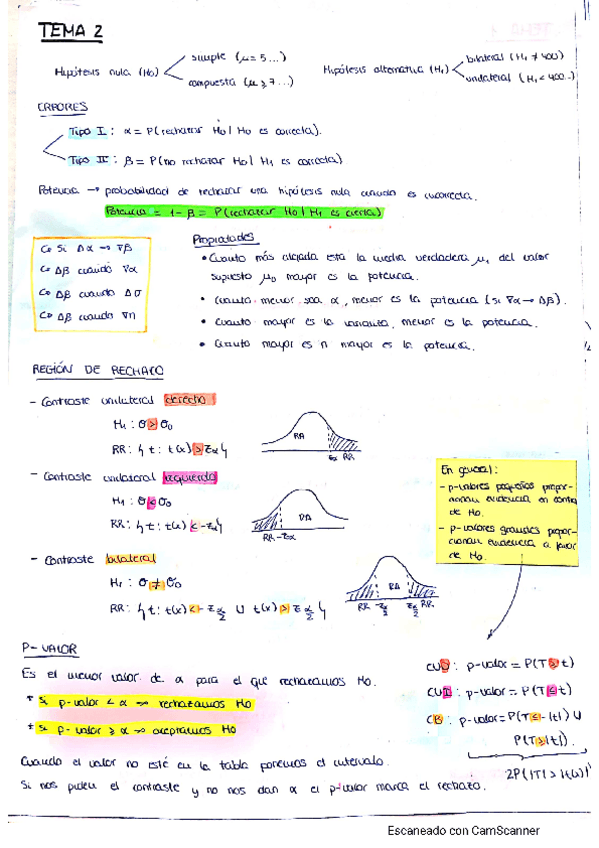 TEMA 2
Hipótesis nula (H0) simple (μ = 5...) compuesta (μ ≥ 7...)
Hipótesis alternativa (H1) bilateral (H1 ≠ 400) unilateral (H1 < 400...)
ERRORES
Tipo I : α = P(rechazar H0 | H0 es correcta).
Tipo II : β = P(no rechazar H0 | H1 es correcta)
Potencia → probabilidad de rechazar una hipótesis nula cuando es incorrecta.
Potencia = 1 - β = P(rechazar H0 | H1 es cierta)
Si Δα → ∇β
Δβ cuando ∇α
Δβ cuando Δσ
Δβ cuando ∇n
Propiedades
• Cuanto más alejada está la media verdadera μ1 del valor
supuesto μ0 mayor es la potencia.
• Cuanto menor sea α, menor es la potencia (si ∇α → Δβ).
• Cuanto mayor es la varianza, menor es la potencia.
• Cuanto mayor es n mayor es la potencia.
REGIÓN DE RECHAZO
- Contraste unilateral derecho
H1 : θ > θ0
RR: { t : t(x) > zα }
RA
zα RR
- Contraste unilateral izquierdo
H1 : θ < θ0
RR: { t : t(x) < -zα }
RA
RR -zα
- Contraste bilateral
H1 : θ ≠ θ0
RR: { t : t(x) < -zα/2 ∪ t(x) > zα/2 }
RA
RR -zα/2 zα/2 RR
En general:
- p-valores pequeños propor-
cionan evidencia en contra
de H0.
- p-valores grandes propor-
cionan evidencia a favor
de H0.
P-VALOR
Es el menor valor de α para el que rechazamos H0.
* Si p-valor < α → rechazamos H0
* Si p-valor ≥ α → aceptamos H0
CUD : p-valor = P(T ≥ t)
CUI : p-valor = P(T ≤ t)
CB : p-valor = P(T ≤ -|t|) ∪
P(T ≥ |t|).
2P(|T| > |t(x)|)
Cuando el valor no esté en la tabla ponemos el intervalo.
Si nos piden el contraste y no nos dan α el p-valor marca el rechazo.
Escaneado con CamScanner